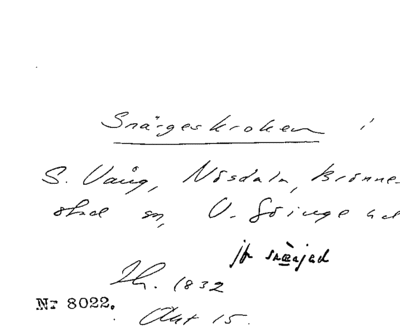 Snärgeskroken i
S. Vång, Nösdala, Brönne-
stad sn, V. Göinge hd
jfr snärjad
Th. 1832
Nr 8022.
Akt 15.